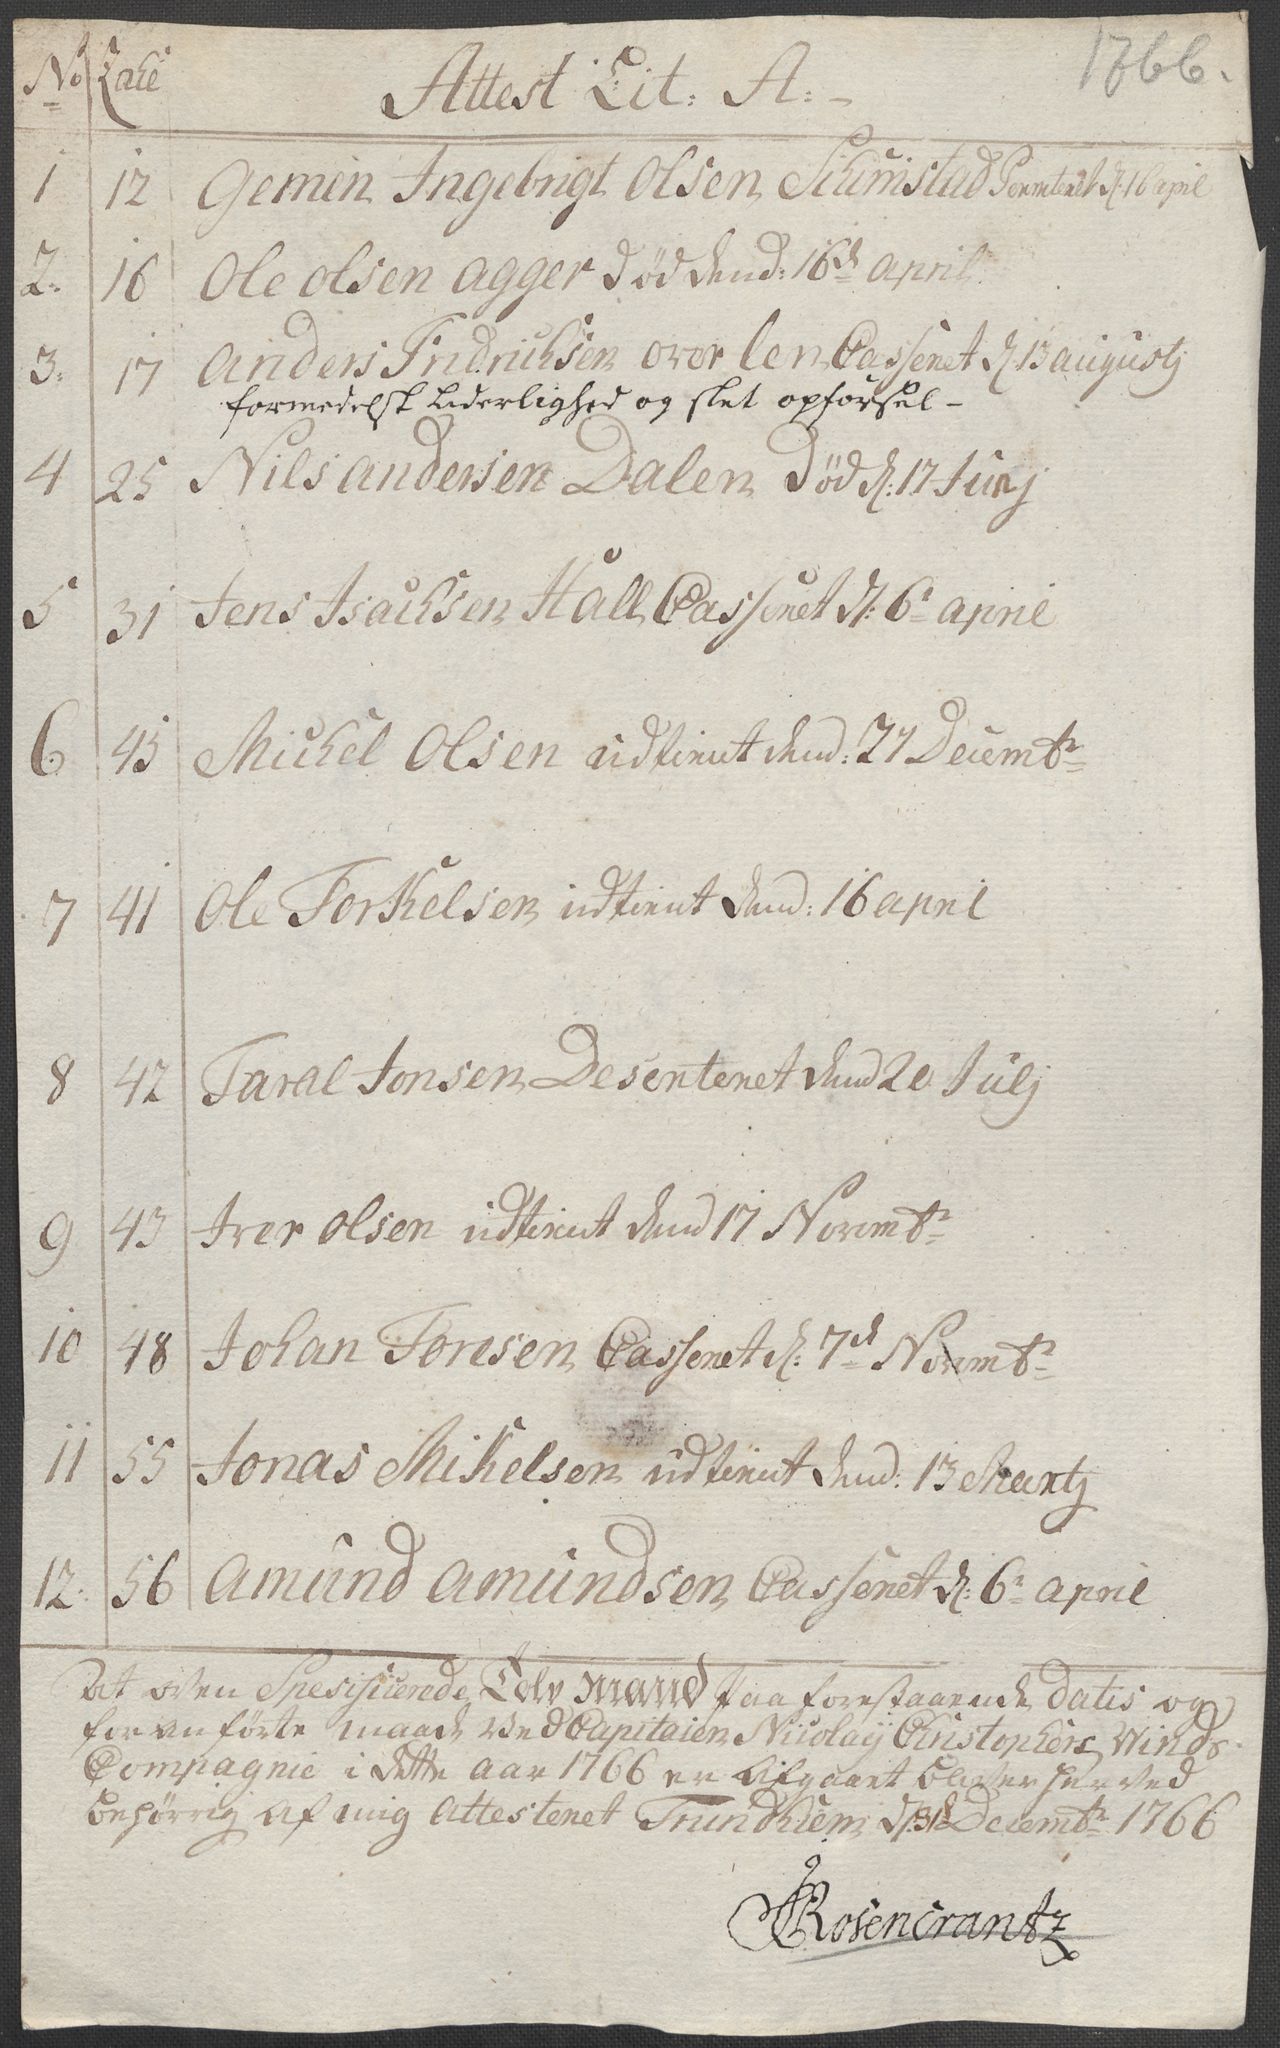 1766.
No Lahe Attest Lit: A: -
1 12 Gemen Ingebrigt Olsen Skimstad d: 16 april
2: 16 Ole olsen agger død dend: 16de april
3: 17 anders Fridrichsen over len Casseret d: 13 augustj
formedelst Liderlighed og slet opførsel -
4 25 Nils andersen Dalen død d: 17 Junj
5 31 Jens Isachsen Hall Casseret d: 6t april
6 45 Michel Olsen udtient dend: 27 Decembr
7 41 Ole Torkelsen udtient dend: 16 april
8 42 Taral Jonsen Deserteret dend 20 Julj
9 43 Iver olsen udtient dend 17 Novembr
10 48 Johan Toresen Casseret d: 7de Novembr
11 55 Jonas Mikelsen udtient dend: 13 Martj
12: 56 Amund Amundsen Casseret d: 6t april
At oven Spesificerede Tolv Mand paa forestaaende Datis og
for anførte maade ved Capitaien Nicolaij Christophers Winds
Compagnie i dette aar 1766 er afgaaet bliver herved
behørrig af mig Attesteret Trundhiem d: 31te Decembr 1766
Rosencrantz